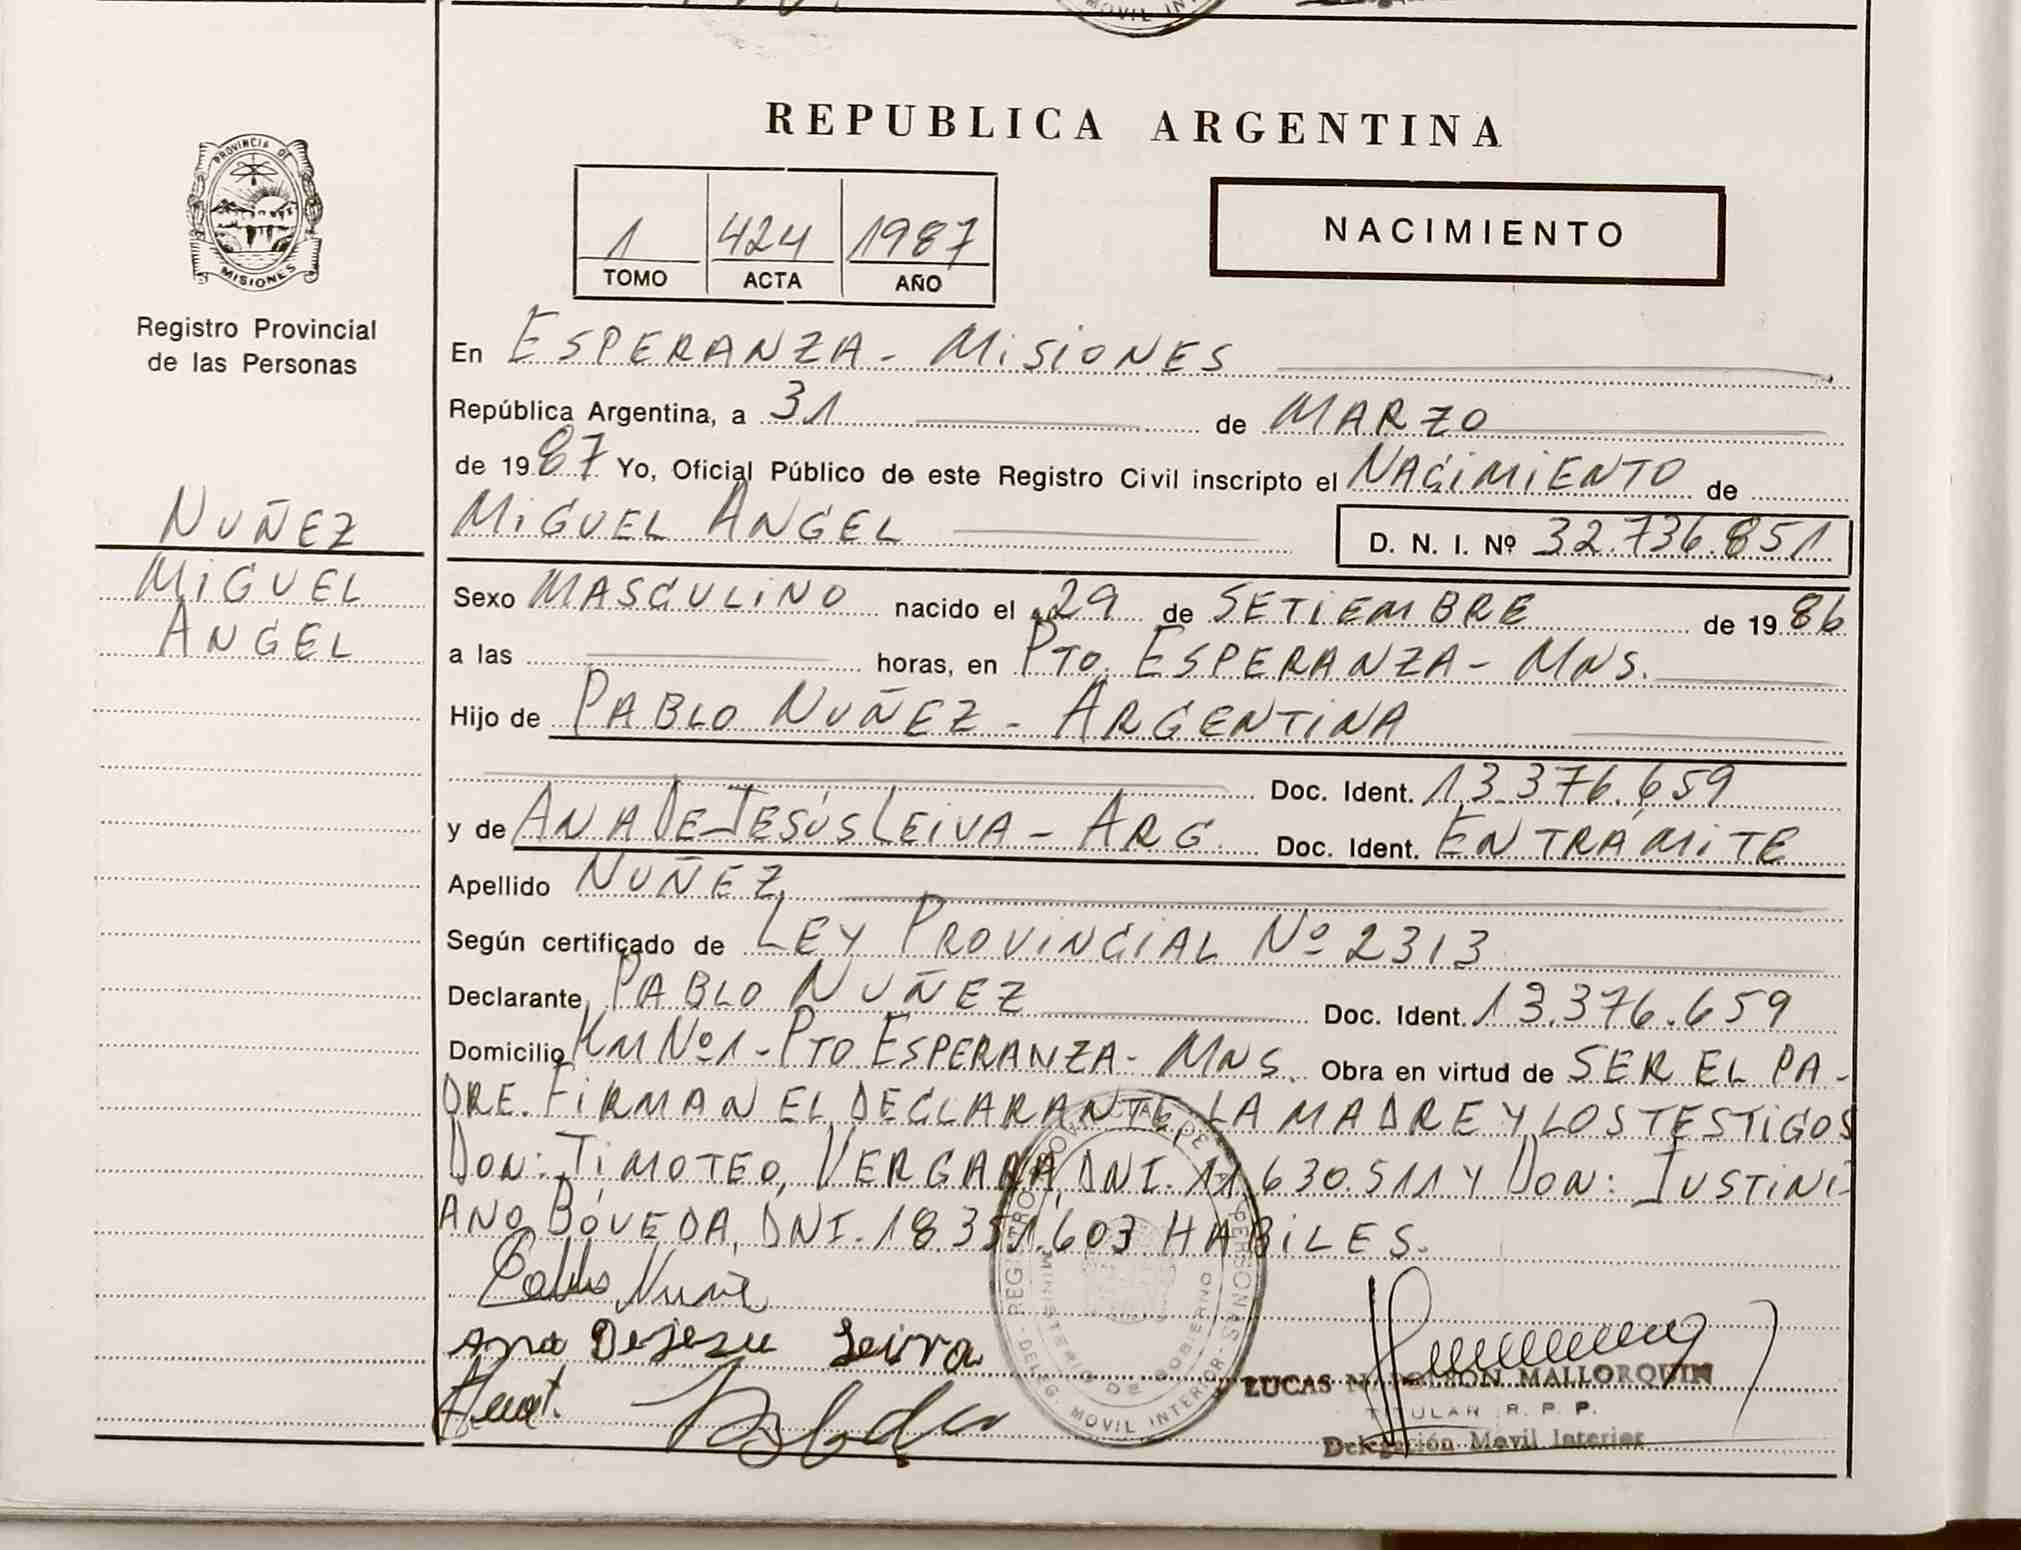 MOVIL IN
PROVINCIA DE
MISIONES
Registro Provincial
de las Personas
NUÑEZ
MIGUEL
ANGEL
REPUBLICA ARGENTINA
1 424 1987
TOMO ACTA AÑO
NACIMIENTO
En ESPERANZA - MISIONES
República Argentina, a 31 de MARZO
de 1987 Yo, Oficial Público de este Registro Civil inscripto el NACIMIENTO de
MIGUEL ANGEL D. N. I. Nº 32.736.851
Sexo MASCULINO nacido el 29 de SETIEMBRE de 1986
a las horas, en PTO. ESPERANZA - MNS.
Hijo de PABLO NUÑEZ - ARGENTINA
Doc. Ident. 13.376.659
y de ANA DE JESÚS LEIVA - ARG. Doc. Ident. EN TRÁMITE
Apellido NUÑEZ
Según certificado de LEY PROVINCIAL Nº 2313
Declarante PABLO NUÑEZ Doc. Ident. 13.376.659
Domicilio KM Nº 1 - PTO ESPERANZA - MNS. Obra en virtud de SER EL PA-
DRE. FIRMAN EL DECLARANTE, LA MADRE Y LOS TESTIGOS
DON: TIMOTEO, VERGARA, DNI. 11.630.511 Y DON: JUSTINI-
ANO BÓVEDA, DNI. 18.351.603 HABILES.
Ana Dejesu Leiva
REGISTRO PROVINCIAL DE LAS PERSONAS
MINISTERIO DE GOBIERNO
DELEG. MOVIL INTERIOR
LUCAS MALLORQUIN
TITULAR R. P. P.
Delegación Movil Interior